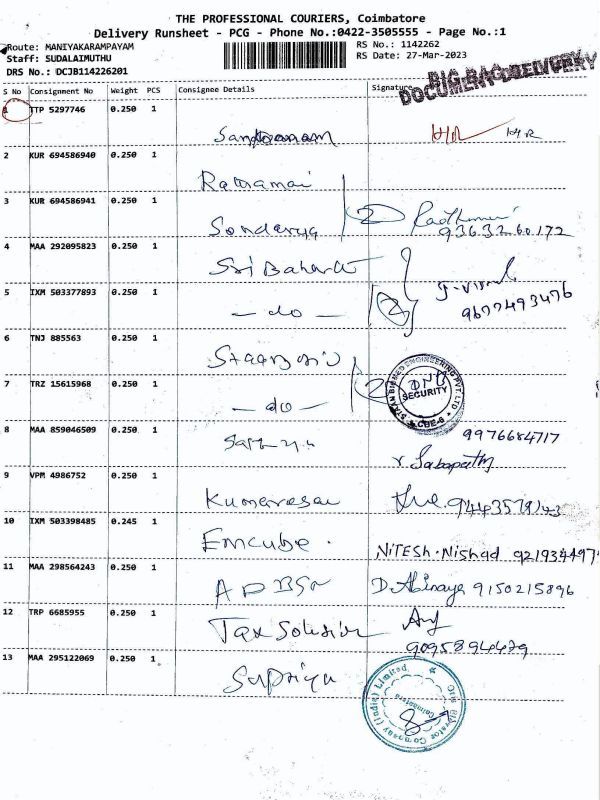 THE PROFESSIONAL COURIERS, Coimbatore
Delivery Runsheet - PCG - Phone No.:0422-3505555 - Page No.:1
Route: MANIYAKARAMPAYAM
RS No.: 1142262
Staff: SUDALAIMUTHU
RS Date: 27-Mar-2023
DRS No.: DCJB114226201
BIG BAG DELIVERY
DOCUMENT DELIVERY
S No Consignment No Weight PCS Consignee Details Signature
1 TTP 5297746 0.250 1
2 KUR 694586940 0.250 1
Ramamani
3 KUR 694586941 0.250 1
Sondarya 2
9363260172
4 MAA 292095823 0.250 1
Sri Baharat
5 IXM 503377893 0.250 1
- do - 2
9677493476
6 TNJ 885563 0.250 1
7 TRZ 15615968 0.250 1
- do - 2
SECURITY
CBE-6
8 MAA 859046509 0.250 1
9976684717
r Sabapathy
9 VPM 4986752 0.250 1
Kumaresan
10 IXM 503398485 0.245 1
Emcube.
NiTESH.Nishad 921934497
11 MAA 298564243 0.250 1
D. Abinaya 9150215896
12 TRP 6685955 0.250 1
Tax Solution
9095894429
13 MAA 295122069 0.250 1
Supriya
Otis Elevator Company (India) Limited
Coimbatore